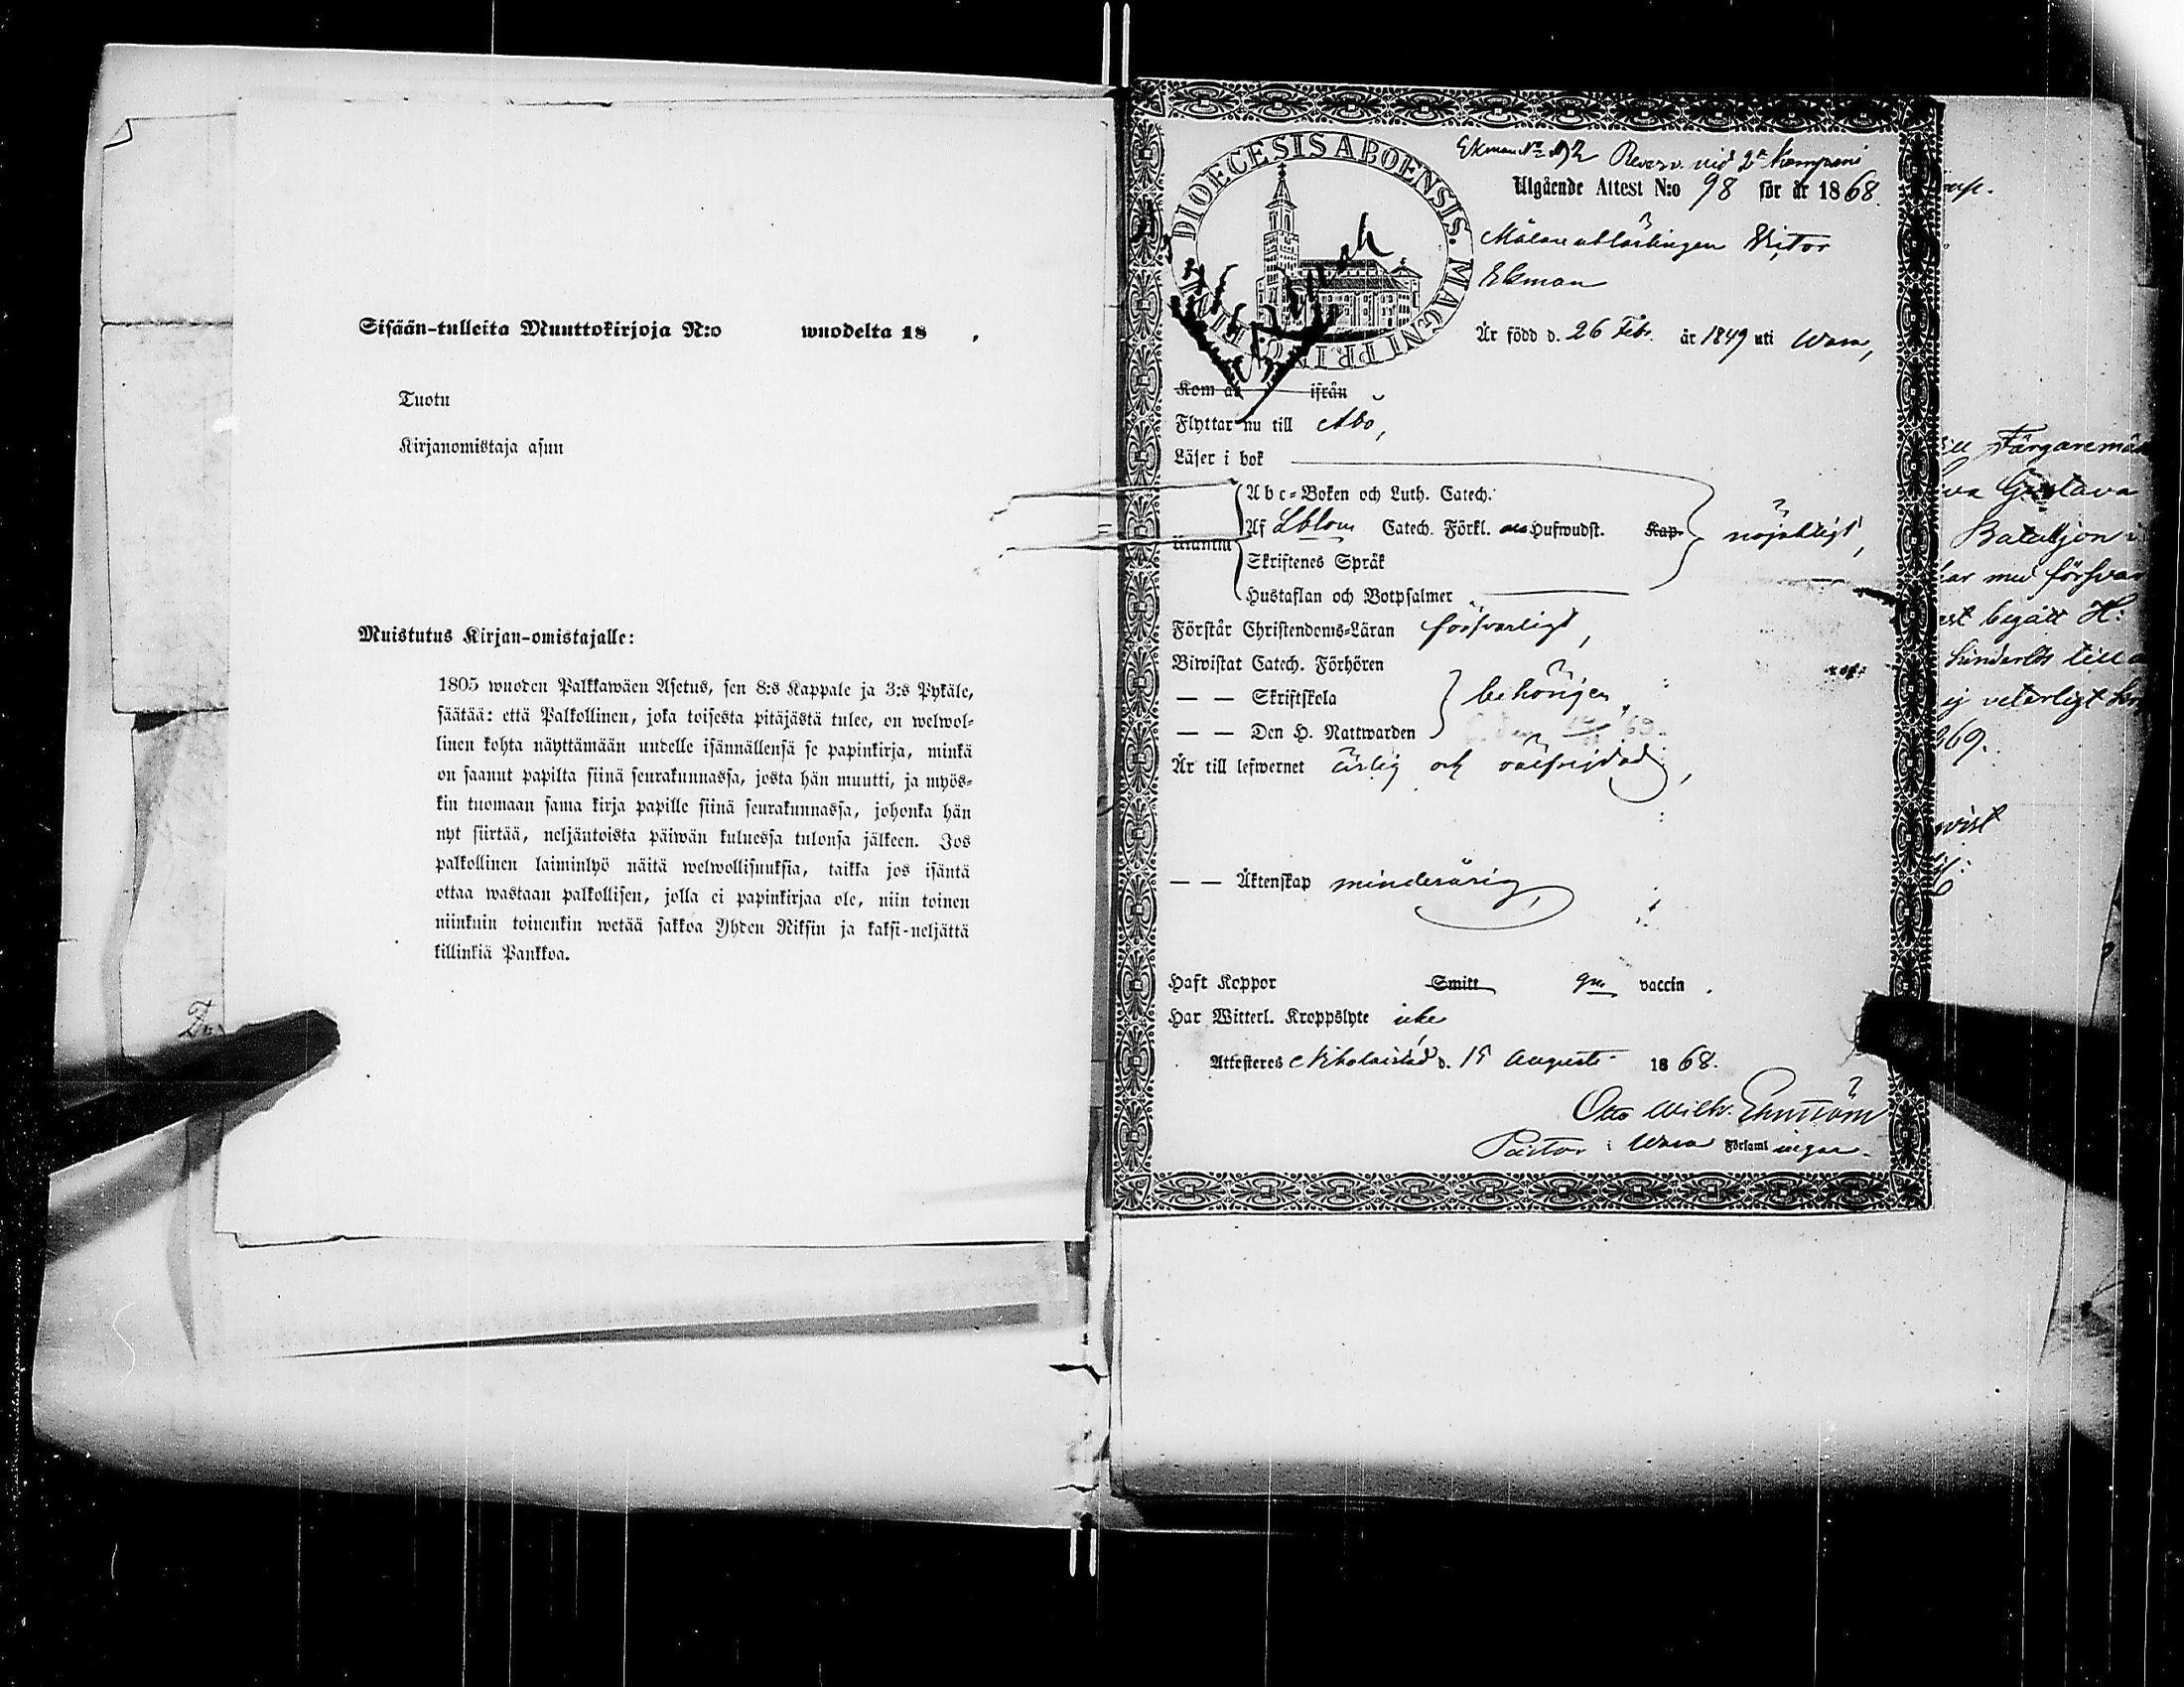 Sisään-tulleita Muuttokirjoja N:o wuodelta 18 .
Tuotu
Kirjanomistaja asuu
Muistutus Kirjan-omistajalle:
1805 wuoden Palkkawäen Asetus, sen 8:s Kappale ja 3:s Pykäle,
säätää: että Palkollinen, joka toisesta pitäjästä tulee, on welwol-
linen kohta näyttämään uudelle isännällensä se papinkirja, minkä
on saanut papilta siinä seurakunnassa, josta hän muutti, ja myös-
kin tuomaan sama kirja papille siinä seurakunnassa, johonka hän
nyt siirtää, neljäntoista päiwän kuluessa tulonsa jälkeen. Jos
palkollinen laiminlyö näitä welwollisuuksia, taikka jos isäntä
ottaa wastaan palkollisen, jolla ei papinkirjaa ole, niin toinen
niinkuin toinenkin wetää sakkoa Yhden Riksin ja kaksi-neljättä
killinkiä Pankkoa.
DIOECESIS ABOENSIS. MAGNI PRINC.
Ekman No 92 Reserv. vid 2a Kompani
Utgående Attest N:o 98 för år 1868.
Målarelärlingen Victor
Ekman
Är född d. 26 Febr. år 1849 uti Wasa,
Kom ifrån
Flyttar nu till Åbo,
Läser i bok
Abc-Boken och Luth. Catech.
Utantill Af Catech. Förkl. Hufwudst. Kap. nöjaktigt,
Skriftenes Språk
Hustaflan och Botpsalmer
Förstår Christendoms-Läran försvarligt,
Biwistat Catech. Förhören
— — Skriftskola behörigen,
— — Den H. Nattwarden
Är till lefwernet ärlig och välfrejdad,
— — Äktenskap minderårig,
Haft Koppor Smitt gm. vaccin .
Har Witterl. Kroppslyte icke
Attesteras Nikolaistad d. 15 Augusti 1868.
Otto Wilh.
Pastor i Wasa Församlingar.
till Färgaremäs
Gustava
Bataljon
har med försvar
begått H:
hinderlös till
ej veterligt
869.